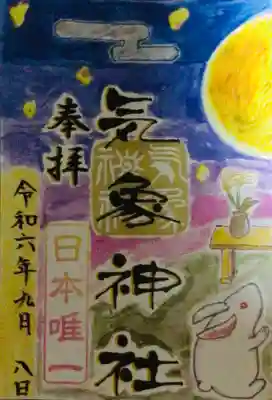 奉拝
気象神社
日本唯一
令和六年九月八日